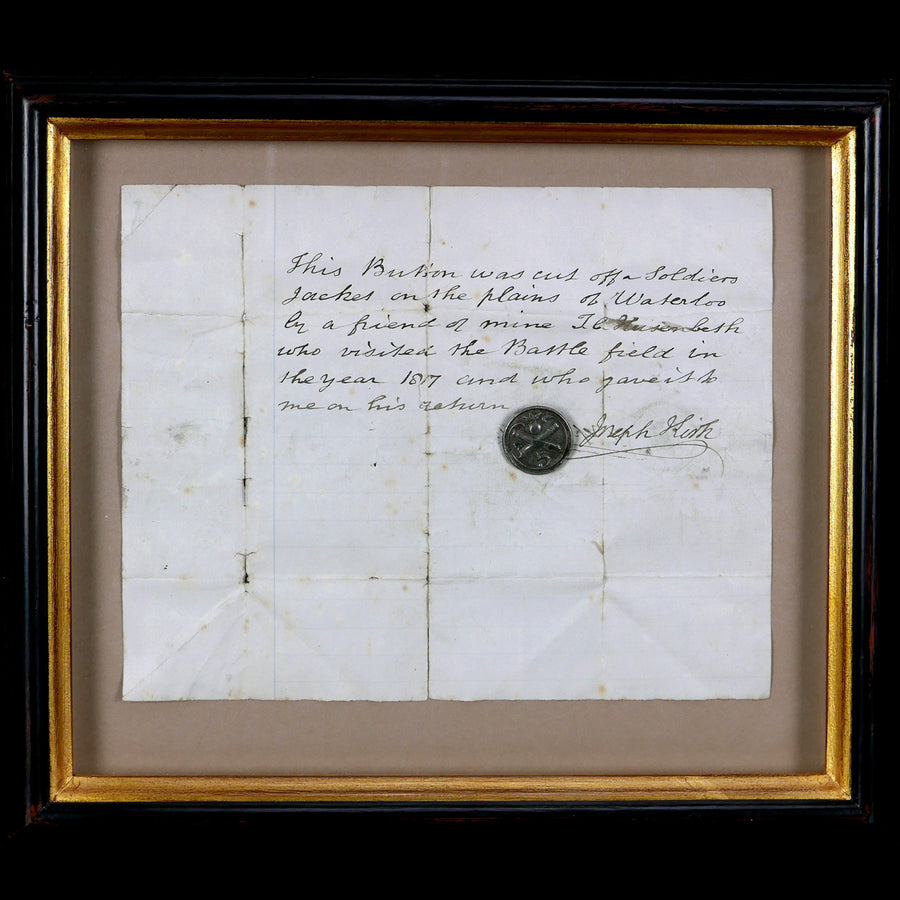 This Button was cut off a Soldiers
Jacket on the plains of Waterloo
by a friend of mine F. C. Husenbeth
who visited the Battle field in
the year 1817 and who gave it to
me on his return
Joseph Kirk
5